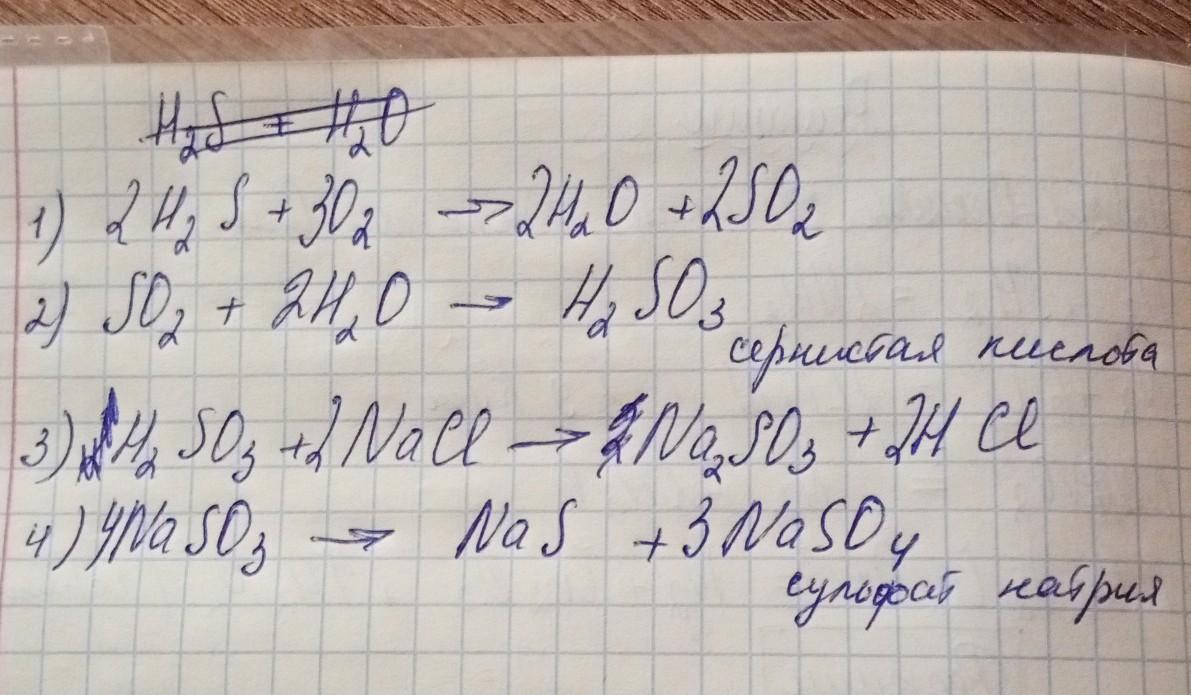 H₂S + H₂O
1) 2H₂S + 3O₂ → 2H₂O + 2SO₂
2) SO₂ + 2H₂O → H₂SO₃
сернистая кислота
3) H₂SO₃ + 2NaCl → Na₂SO₃ + 2HCl
4) 4NaSO₃ → NaS + 3NaSO₄
сульфат натрия